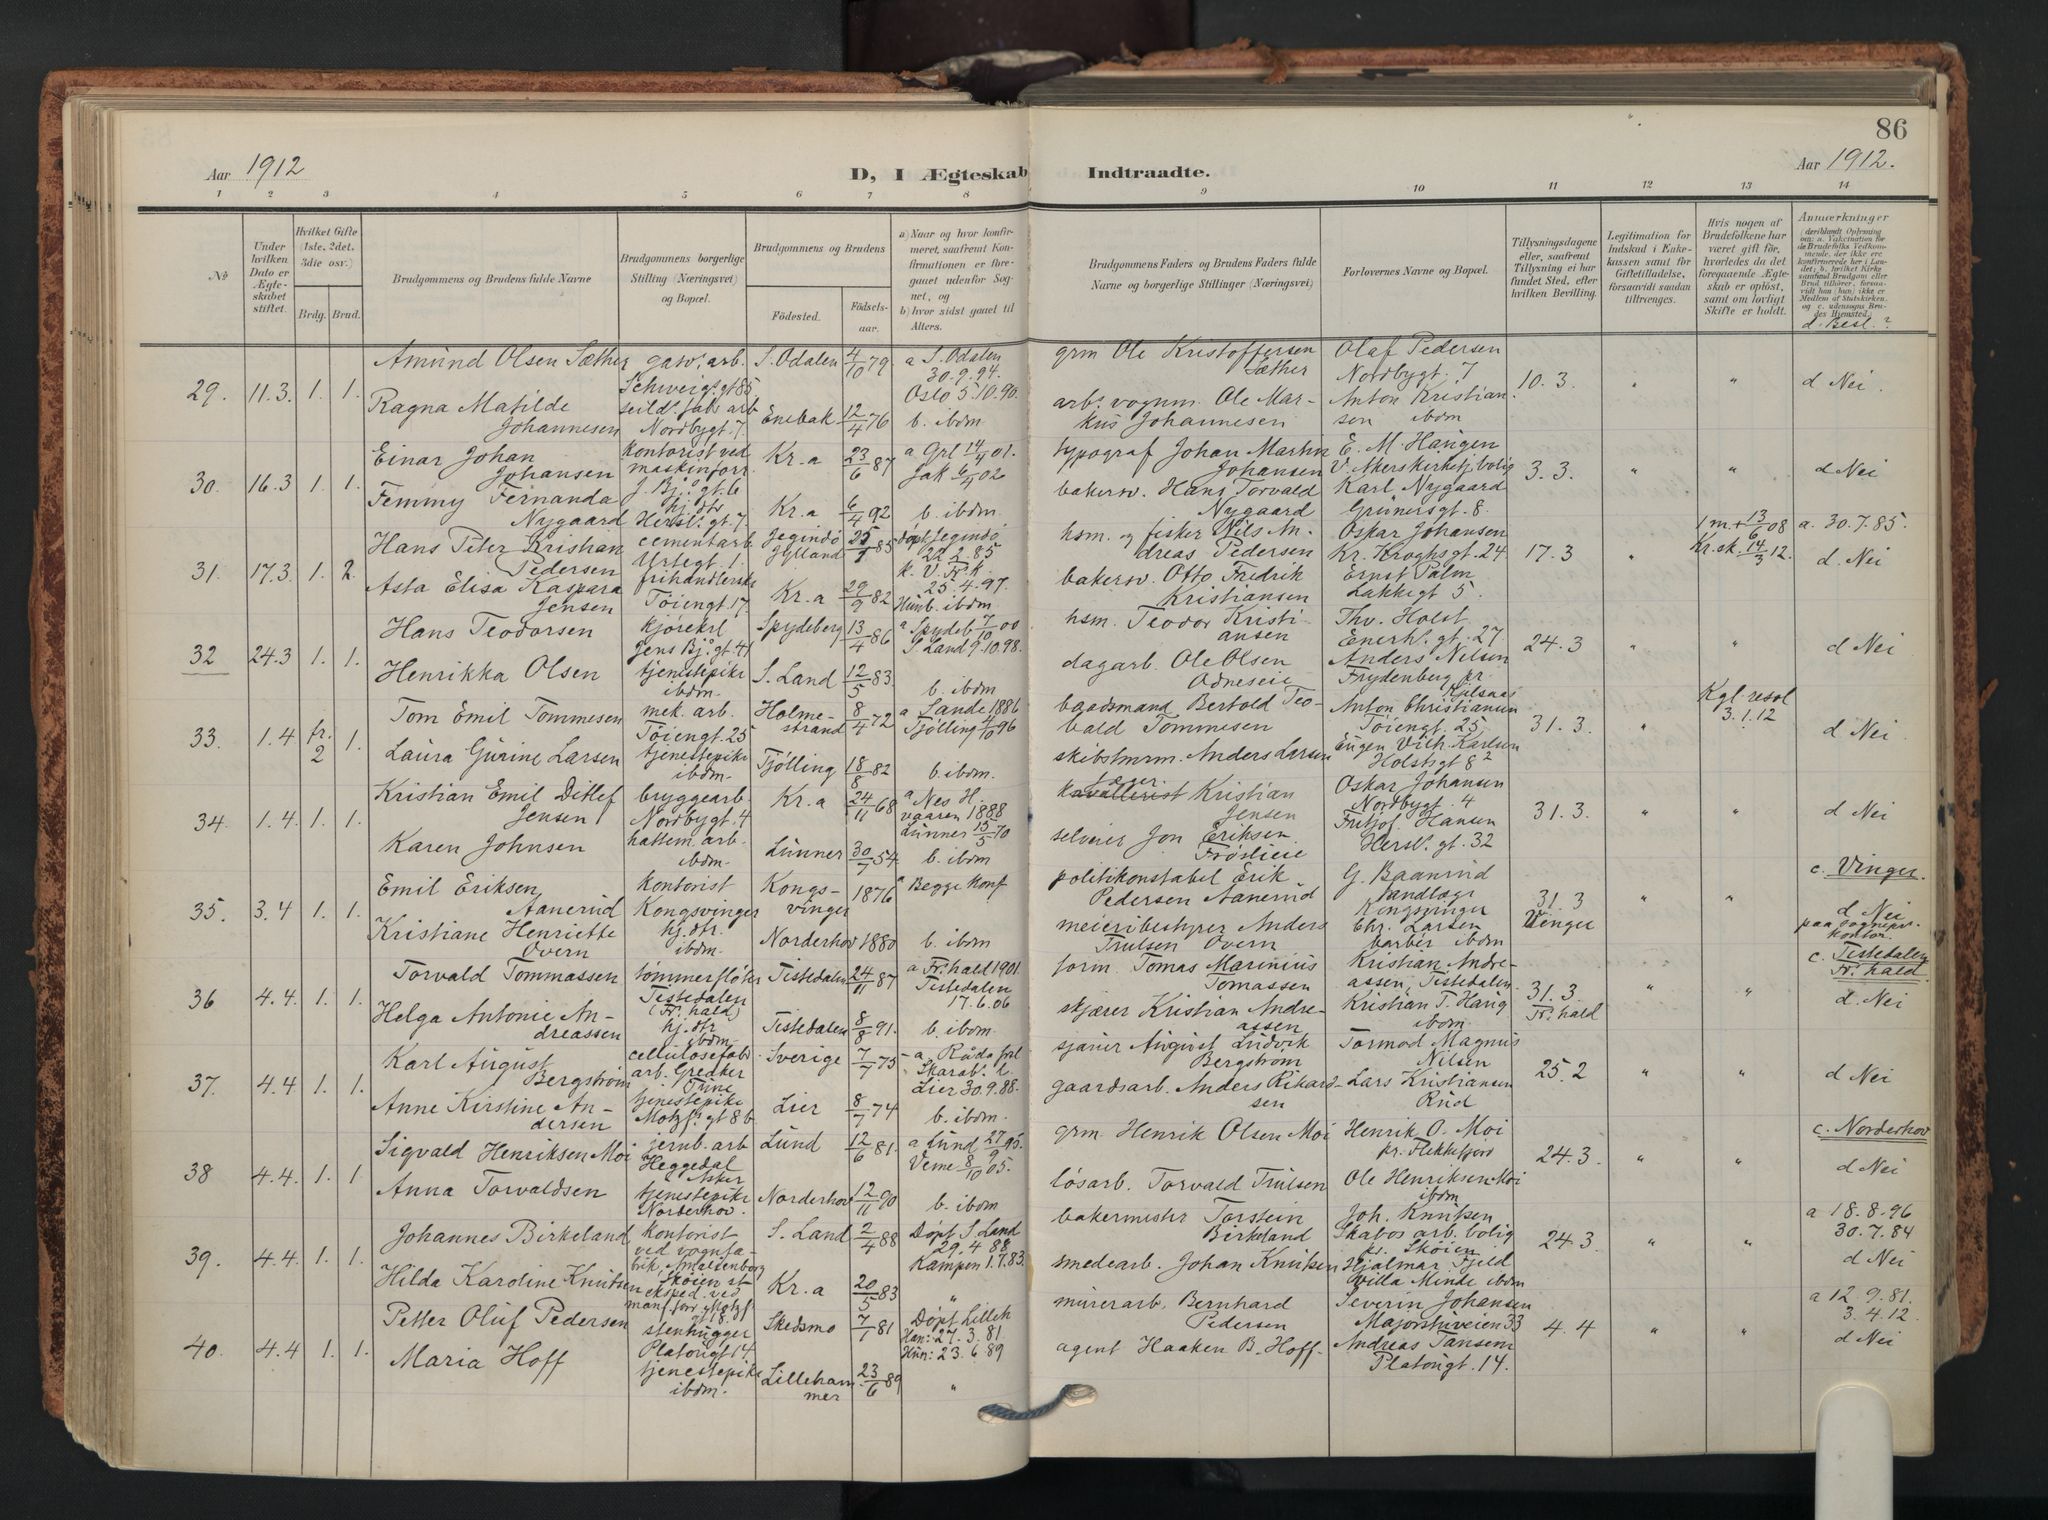 86
Aar 1912
D, I Ægteskab Indtraadte.
Aar 1912.
1 2 3 4 5 6 7 8 9 10 11 12 13 14
No
Under hvilken Dato er Ægteskabet stiftet.
Hvilket Gifte (1ste, 2det, 3die osv.)
Brdg. Brud.
Brudgommens og Brudens fulde Navne
Brudgommens borgerlige Stilling (Næringsvei) og Bopæl.
Brudgommens og Brudens
Fødested. Fødselsaar.
a) Naar og hvor konfirmeret, saafremt Konfirmationen er foregaaet udenfor Sognet, og
b) hvor sidst gaaet til Alters.
Brudgommens Faders og Brudens Faders fulde Navne og borgerlige Stillinger (Næringsvei)
Forlovernes Navne og Bopæl.
Tillysningsdagene eller, saafremt Tillysning ei har fundet Sted, efter hvilken Bevilling.
Legitimation for Indskud i Enkekassen samt for Giftetilladelse, forsaavidt saadan tiltrænges.
Hvis nogen af Brudefolkene har været gift før, hvorledes da det foregaaende Ægteskab er opløst, samt om lovligt Skifte er holdt.
Anmærkninger
d. Besl.?
29. 11.3. 1. 1.
Amund Olsen Sæther gasv. arb. Schweigs.gt 85 S. Odalen 4/10 79 a S. Odalen 30.9.94. Oslo 5.10.90.
grm Ole Kristoffersen Sæther Olaf Pedersen Nordbygt. 7 10.3. " " d Nei.
Ragna Matilde Johannesen seilds. fabr arb Nordbygt. 7 Enebak 12/4 76 b. ibdm
arb. vognm. Ole Markus Johannesen Anton Kristiansen ibdm
30. 16.3 1. 1.
Einar Johan Johansen kontorist ved maskinforr. J. Bj. gt. 6 Kr.a 23/6 87 a Grl 14/4 01. Jak 6/4 02
typograf Johan Martin Johansen E. M. Haugen V. Akerskirketj.bolig 3.3. " " d Nei
Femmy Fernanda Nygaard hj. dtr Hersl. gt. 7. Kr.a 6/4 92 b. ibdm.
bakersv. Hans Torvald Nygaard Karl Nygaard Grünersgt. 8.
31. 17.3. 1. 2.
Hans Peter Kristian Pedersen cementarb Urtegt. 1. Jegindö Jylland 25/1 85 döpt Jegindö 22.2.85
hsm. og fisker Nils Andreas Pedersen Oskar Johansen Kr. Kroghsgt. 24 17.3 " 1 m. + 13/6 08 Kr. sk. 14/3 12. a. 30.7.85. d Nei
Asta Elisa Kaspara Jensen frihandlerske Töiengt. 17 Kr.a 29/9 82 25.4.97. Hun b. ibdm.
bakersv. Otto Fredrik Kristiansen Ernst Palm Lakkegt 5.
32 24.3 1. 1.
Hans Teodorsen kjörekrl Jens Bj. gt. 41 Spydeberg 13/4 86 a Spydeb 7/10 00 S Land 9.10.98.
hsm. Teodor Kristiansen Thv. Holst Enerh. gt. 27 24.3 " " d Nei
Henrikka Olsen tjenestepike ibdm. S. Land 12/5 83. b. ibdm
dagarb. Ole Olsen Odneseie Anders Nilsen Frydenberg pr. Kjelsaas
33. 1.4 fr. 2 1.
Tom Emil Tommesen mek. arb. Töiengt. 25 Holmestrand 8/4 72 a Sande 1886 Tjölling 4/10 96
baadsmand Bertold Teobald Tommesen Anton Christiansen Töiengt. 25 31.3 " Kgl. resol 3.1.12 d Nei
Laura Gurine Larsen tjenestepike ibdm. Tjölling 18/8 82 b. ibdm.
skibstmrm. Anders Larsen Eugen Vilh. Karlsen Holstsgt 8 2
34. 1.4. 1. 1.
Kristian Emil Ditlef Jensen bryggearb. Nordbygt. 4 Kr.a 24/11 68 a Nes H. vaaren 1888 Lunner 15/5 70
Kristian Jensen Oskar Johansen Nordbygt. 4 31.3. " " d Nei
Karen Johnsen hattem. arb. ibdm. Lunner 30/7 54 b. ibdm
selveier Jon Eriksen Fröslieie Fritjof Hansen Hersl. gt. 32
35. 3.4 1. 1.
Emil Eriksen Aanerud kontorist Kongsvinger Kongsvinger 1876 a Begge konf
politikonstabel Erik Pedersen Aanerud G. Baanrud tandlæge Kongsvinger 31.3 Vinger " " c. Vinger.
Kristiane Henriette Overn hj. dtr. ibdm. Norderhov 1880 b. ibdm.
meieribestyrer Anders Trulsen Overn Chr. Larsen barber ibdm d Nei paa sognepr. kontor.
36 4.4. 1. 1.
Torvald Tommassen tömmerflöter Tistedalen (Fr.hald) Tistedalen 24/11 87 a Fr.hald 1901. Tistedalen 17.6.06
form. Tomas Marinius Tomassen Kristian Andreassen, Tistedalen. 31.3. Fr.hald " " c. Tistedalen Fr.hald d. Nei
Helga Antonie Andreassen hj. dtr ibdm. Tistedalen 8/8 91. b. ibdm.
skjærer Kristian Andreassen Kristian T. Haug ibdm.
37. 4.4. 1. 1.
Karl August Bergström cellulosefabr. arb. Greaker Tune Sverige 7/7 75 a. Råda frl Skarab. l. Lier 30.9.88.
sjauer August Ludvik Bergström Tormod Magnus Nilsen 25.2 " " d Nei
Anne Kirstine Andersen tjenestepike Motzf. gt 8 b Lier 8/7 74 b. ibdm.
gaardsarb. Anders Rikardsen Lars Kristiansen Rud
38 4.4. 1. 1
Sigvald Henriksen Moi jernb. arb Heggedal Asker Lund 12/6 81. a Lund 27/9 95. Veme 8/10 05.
grm. Henrik Olsen Moi Henrik O. Moi pr. Flekkefjord 24.3. " " c. Norderhov d Nei
Anna Torvaldsen tjenestepike Norderhov. Norderhov 12/11 90 b. ibdm
lösarb. Torvald Trulsen Ole Henriksen Moi ibdm
39. 4.4. 1. 1.
Johannes Birkeland kontorist ved vognfabrik, Amaldsenborg Sköien st S. Land 2/4 88 Döpt S. Land 29.4.88 Kampen 1.7.83.
bakermester Torstein Birkeland Joh. Knutsen Skabos arb. bolig pr. Sköien 24.3. " " a 18.8.96 30.7.84 d Nei
Hilda Karoline Knutsen eksped. ved manf. forr. Motzf. gt 18. Kr.a 20/5 83 "
smedearb. Johan Knutsen Hjalmar Fjeld Villa Minde ibdm
40. 4.4 1. 1.
Petter Oluf Pedersen stenhugger Platougt 14. Skedsmo 7/1 81 Döpt Lilleh Han: 27.3.81. Hun: 23.6.89
murerarb. Bernhard Pedersen Severin Johansen Majorstuveien 33 4.4 " " a 12.9.81. 3.4.12. d Nei
Maria Hoff tjenestepike ibdm. Lillehammer 23/6 89 "
agent Haaken B. Hoff Andreas Tansem Platougt. 14.